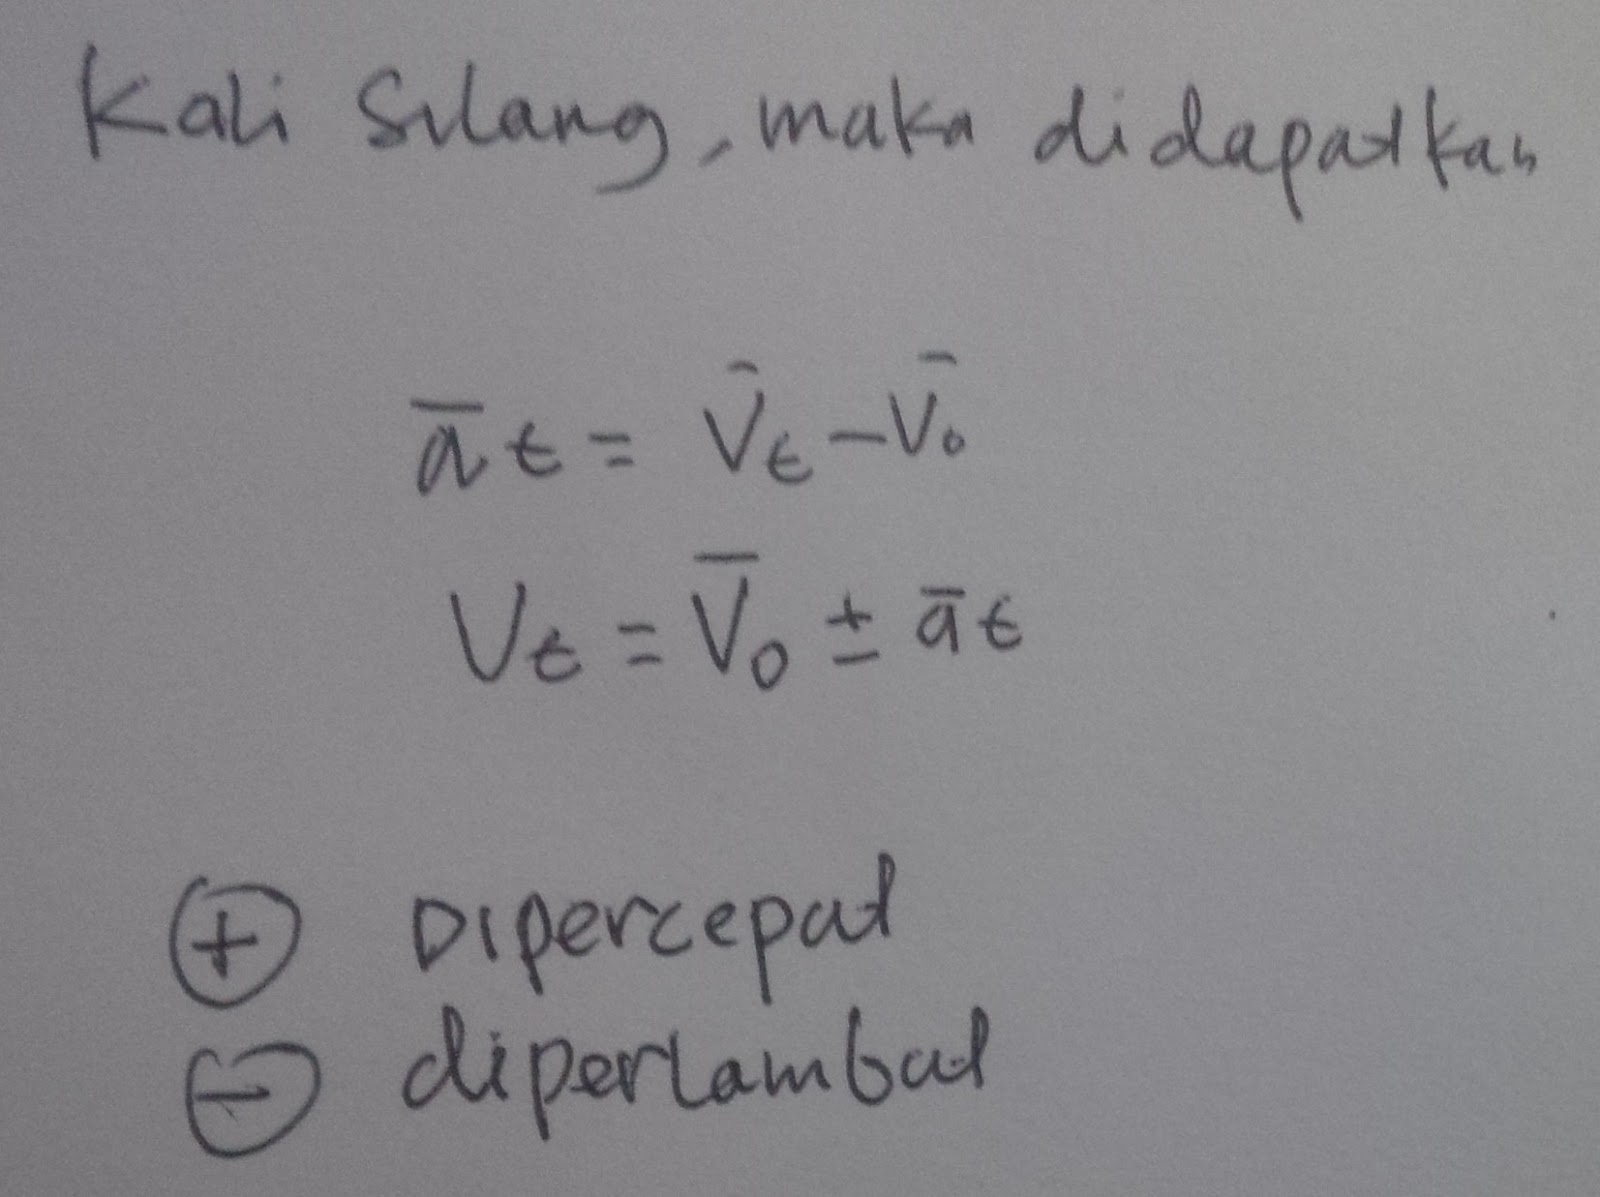 Kali Silang, maka didapatkan
a̅ t = V̅t - V̅o
Vt = V̅o ± a̅ t
⊕ Dipercepat
⊖ diperlambat